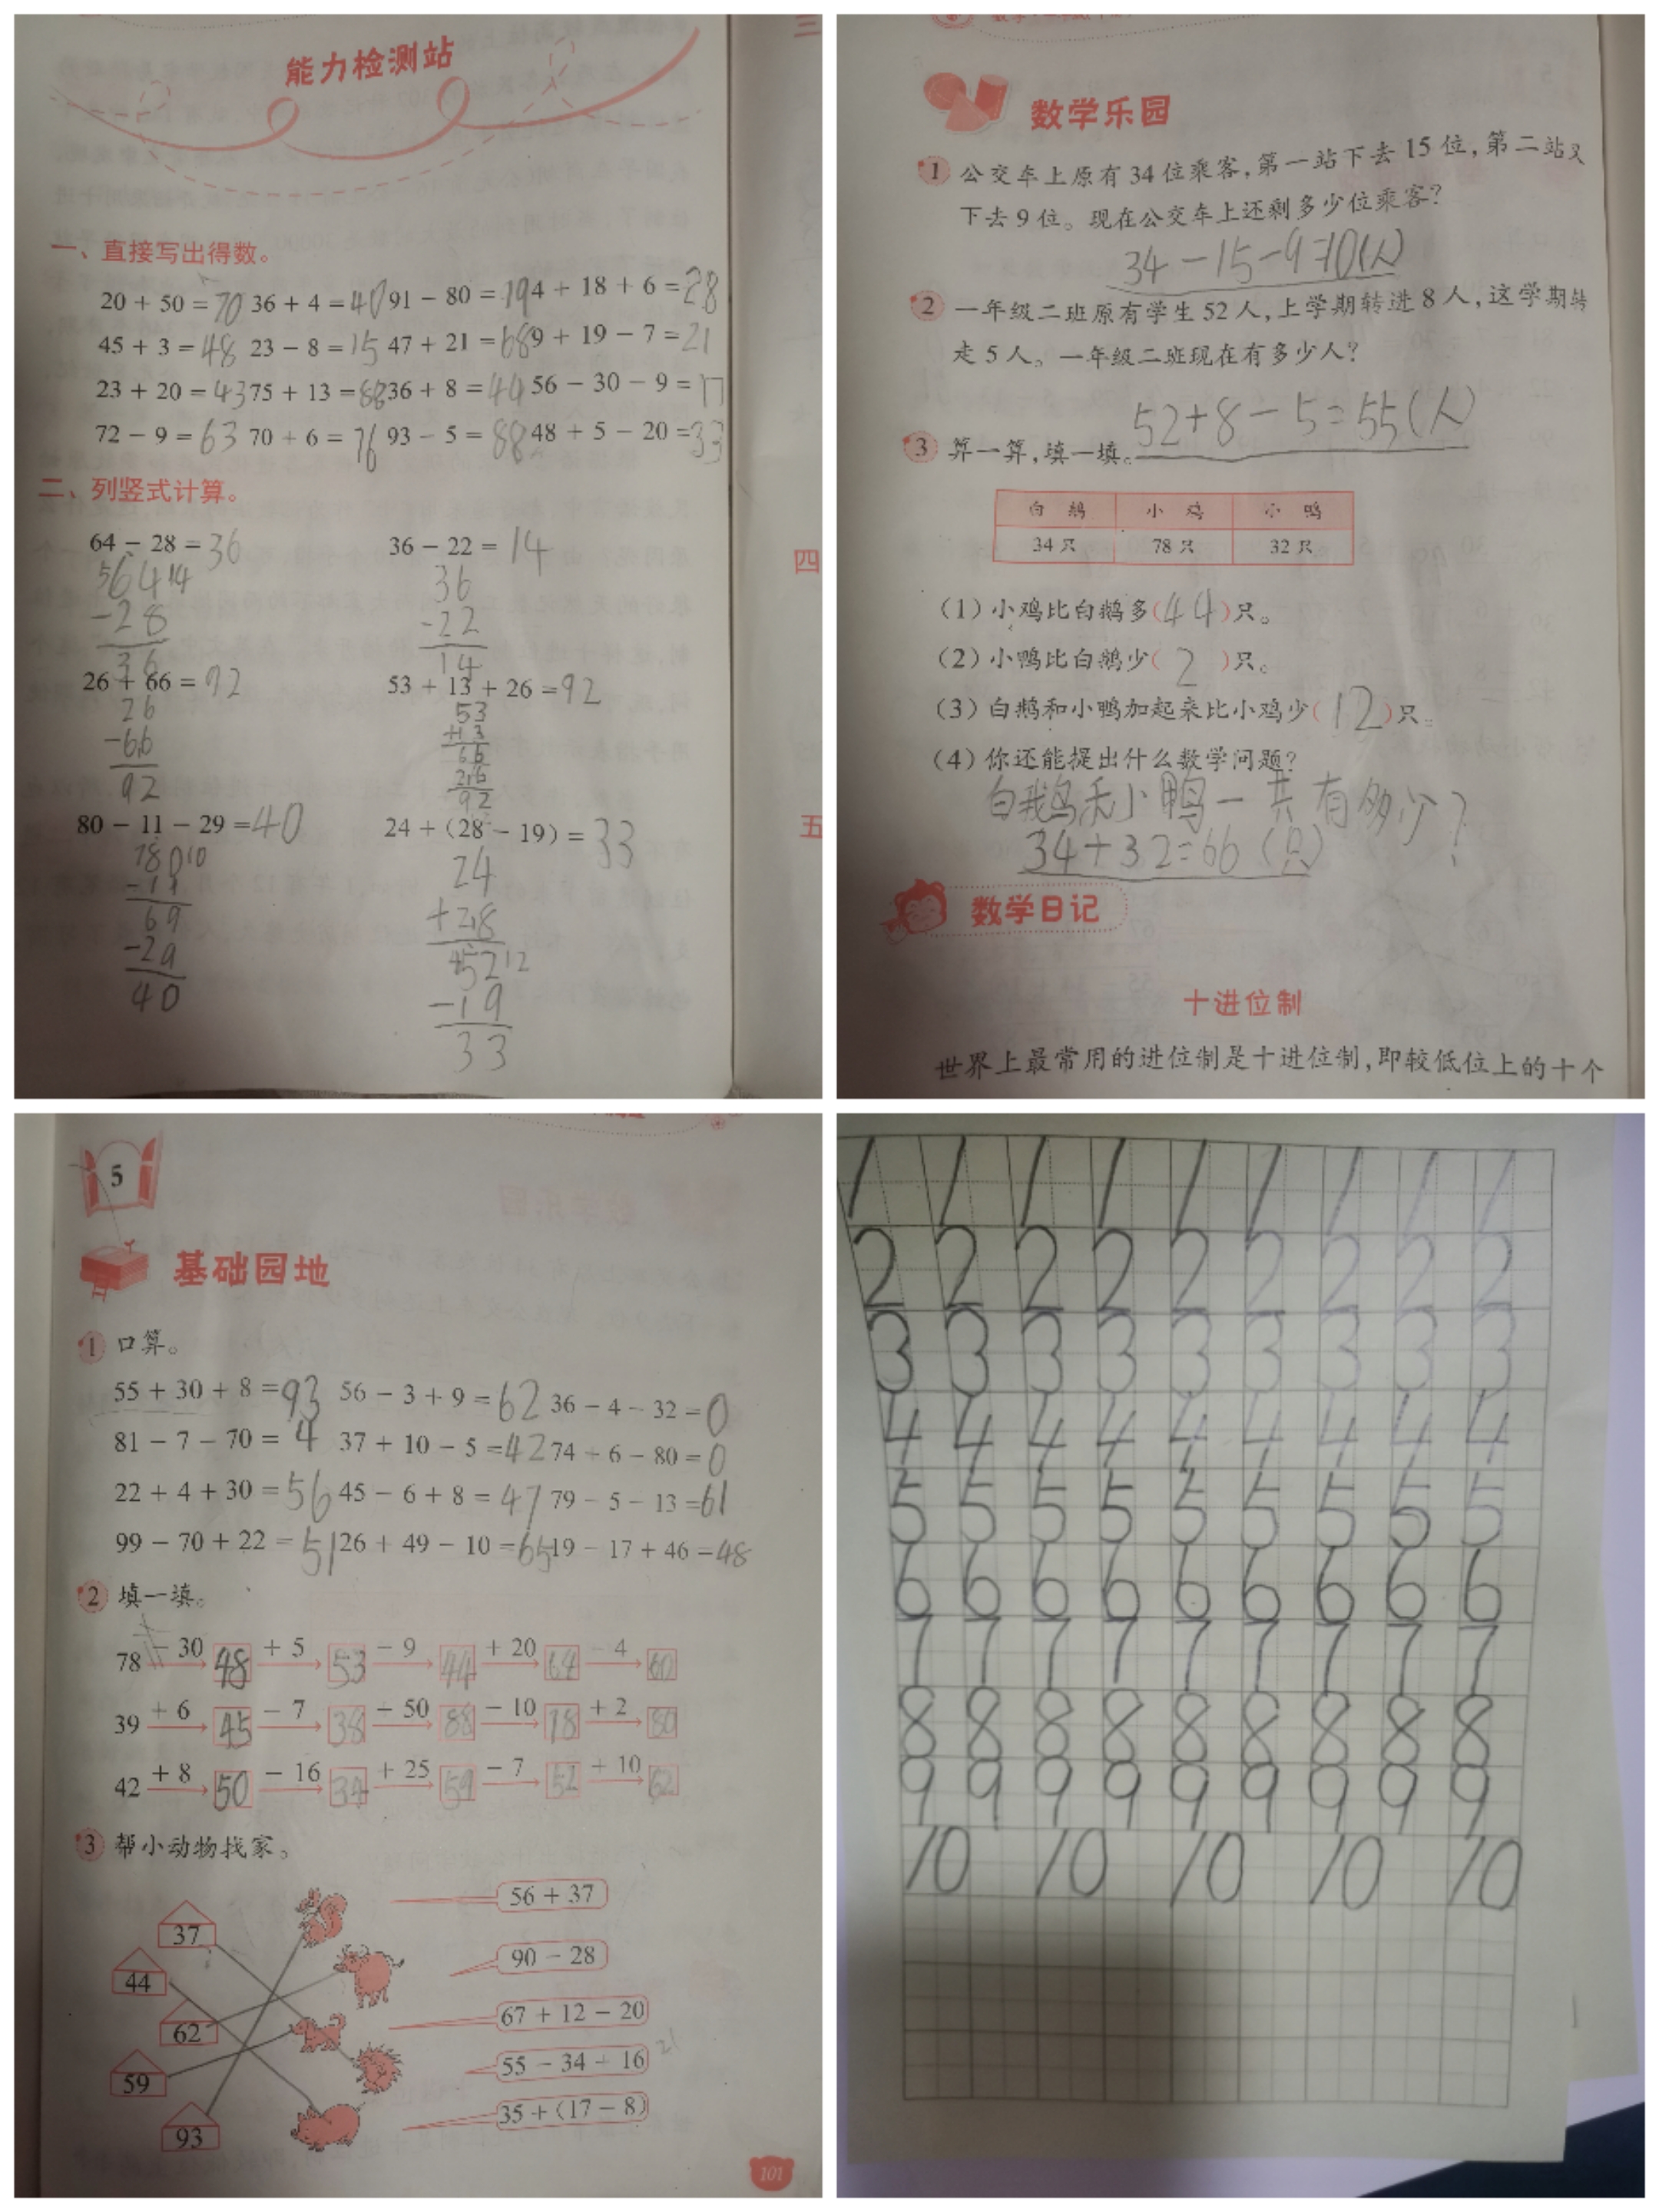 能力检测站
一、直接写出得数。
20 + 50 = 70 36 + 4 = 40 91 - 80 = 19 4 + 18 + 6 = 28
45 + 3 = 48 23 - 8 = 15 47 + 21 = 68 9 + 19 - 7 = 21
23 + 20 = 43 75 + 13 = 88 36 + 8 = 44 56 - 30 - 9 = 17
72 - 9 = 63 70 + 6 = 76 93 - 5 = 88 48 + 5 - 20 = 33
二、列竖式计算。
64 - 28 = 36 36 - 22 = 14
5 64 14 36
-28 -22
36 14
26 + 66 = 92 53 + 13 + 26 = 92
26 53
-66 +13
92 66
26
92
80 - 11 - 29 = 40 24 + (28 - 19) = 33
7 80 10 24
-11 +28
69 4 52 12
-29 -19
40 33
三
四
五
数学乐园
1 公交车上原有 34 位乘客,第一站下去 15 位,第二站又
下去 9 位。现在公交车上还剩多少位乘客?
34-15-9=10(人)
2 一年级二班原有学生 52 人,上学期转进 8 人,这学期转
走 5 人。一年级二班现在有多少人?
52+8-5=55(人)
3 算一算,填一填。
白鹅 小鸡 小鸭
34只 78只 32只
(1) 小鸡比白鹅多(44)只。
(2) 小鸭比白鹅少(2)只。
(3) 白鹅和小鸭加起来比小鸡少(12)只。
(4) 你还能提出什么数学问题?
白鹅和小鸭一共有多少?
34+32=66(只)
数学日记
十进位制
世界上最常用的进位制是十进位制,即较低位上的十个
5
基础园地
1 口算。
55 + 30 + 8 = 93 56 - 3 + 9 = 62 36 - 4 - 32 = 0
81 - 7 - 70 = 4 37 + 10 - 5 = 42 74 + 6 - 80 = 0
22 + 4 + 30 = 56 45 - 6 + 8 = 47 79 - 5 - 13 = 61
99 - 70 + 22 = 51 26 + 49 - 10 = 65 19 - 17 + 46 = 48
2 填一填。
78 - 30 48 + 5 53 - 9 44 + 20 64 - 4 60
39 + 6 45 - 7 38 + 50 88 - 10 78 + 2 80
42 + 8 50 - 16 34 + 25 59 - 7 52 + 10 62
3 帮小动物找家。
56 + 37
37
90 - 28
44
67 + 12 - 20
62
55 - 34 + 16 21
59
35 + (17 - 8)
93
101
1 1 1 1 1 1 1 1 1
2 2 2 2 2 2 2 2 2
3 3 3 3 3 3 3 3 3
4 4 4 4 4 4 4 4 4
5 5 5 5 5 5 5 5 5
6 6 6 6 6 6 6 6 6
7 7 7 7 7 7 7 7 7
8 8 8 8 8 8 8 8 8
9 9 9 9 9 9 9 9 9
10 10 10 10 10